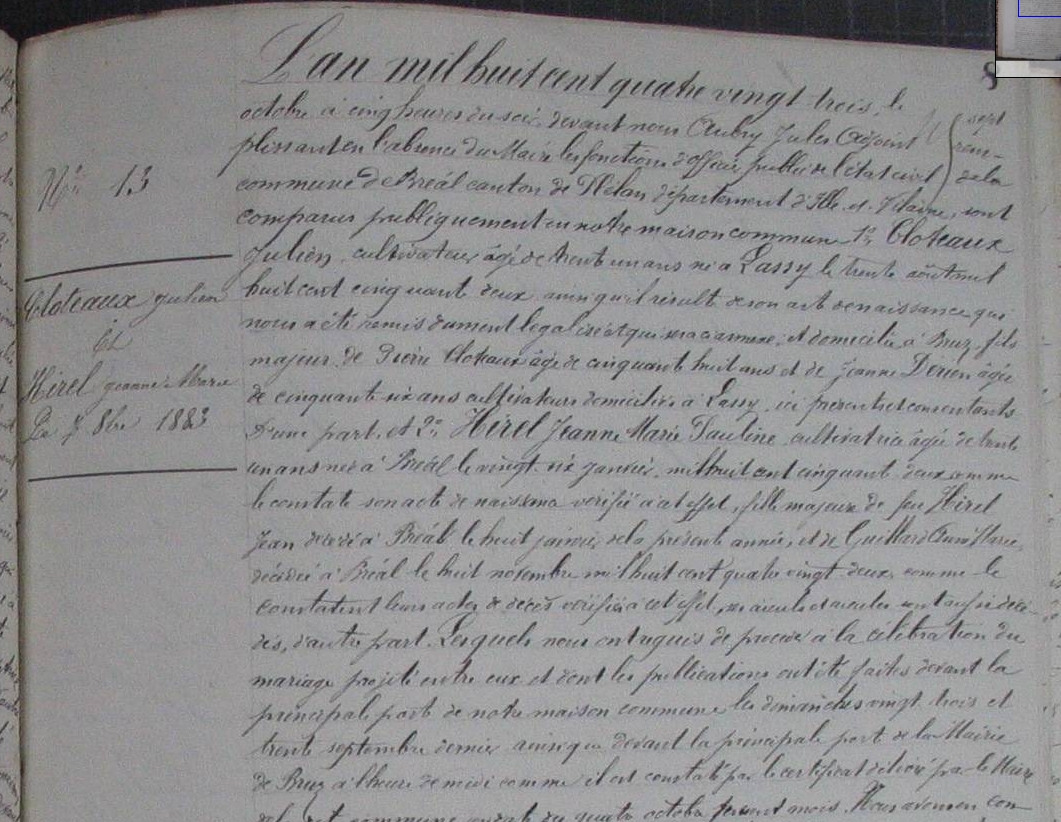 8
L'an mil huit cent quatre vingt trois, le sept
octobre à cinq heures du soir, devant nous Aubry Jules Adjoint rem-
plissant en l'absence du Maire les fonctions d'officier public de l'état civil de la
commune de Bréal canton de Plélan département d'Ille-et-Vilaine, sont
comparus publiquement en notre maison commune 1° Cloteaux
Julien, cultivateur âgé de trente un ans né à Lassy le trente août mil
huit cent cinquante deux, ainsi qu'il résulte de son acte de naissance qui
nous a été remis dûment légalisé et qui sera annexé, et domicilié à Bruz, fils
majeur de Pierre Cloteaux âgé de cinquante huit ans et de Jeanne Derien âgée
de cinquante six ans cultivateurs domiciliés à Lassy, ici présents et consentants
D'une part, et 2° Hirel Jeanne Marie Pauline cultivatrice âgée de trente
un ans née à Bréal le vingt six janvier mil huit cent cinquante deux comme
le constate son acte de naissance vérifié à cet effet, fille majeure de feu Hirel
Jean décédé à Bréal le huit janvier de la présente année, et de Guillard Anne Marie,
décédée à Bréal le huit novembre mil huit cent quatre vingt deux, comme le
constatent leurs actes de décès vérifiés à cet effet, ses aïeuls et aïeules sont aussi décé-
dés, d'autre part. Lesquels nous ont requis de procéder à la célébration du
mariage projeté entre eux et dont les publications ont été faites devant la
principale porte de notre maison commune les dimanches vingt trois et
trente septembre dernier ainsi que devant la principale porte de la Mairie
de Bruz à l'heure de midi comme il est constaté par le certificat délivré par le Maire
commune du quatre octobre présent mois. Nous avons en con-
N° 13
Cloteaux Julien
Et
Hirel Jeanne Marie
Le 7 8bre 1883